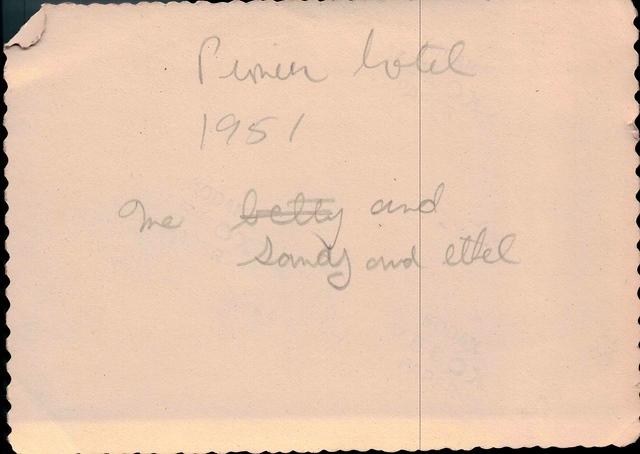 hotel
1951
me betty and
Sandy and ethel